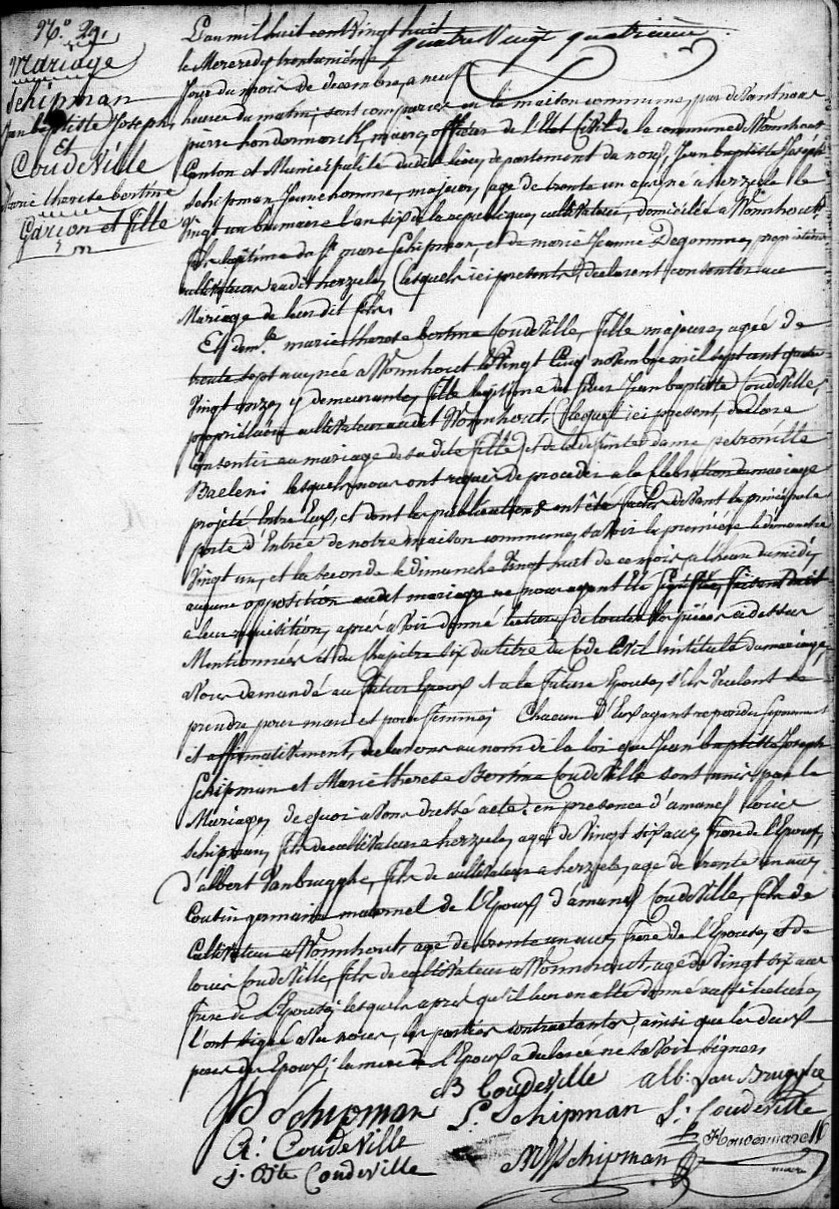 N.° 29.
Mariage
Schipman
Jean baptiste Joseph
et
Coudeville
Marie therese bertine
Garçon et fille
quatre Vingt quatrieme
L'an mil huit cent vingt huit
le Mercredy trente unième
Jour du mois de decembre, a neuf
heures du matin; sont comparus en la maison commune, par devant nous
pierre maire, officier de l'Etat Civil de la commune de Wormhout
Canton et Municipalité dudit lieu, departement du nord, Jean baptiste Joseph
Schipman Jeune homme, majeur, agé de trente un ans né a herzeele le
Vingt un brumaire l'an six de la republique, cultivateur, domicilié a Wormhout,
fils legitime du Sr. pierre Schipman, et de marie Jeanne Degomme, proprietaires
cultivateurs audit herzeele, (lesquels ici presents) declarent consentir au
Mariage de leur dit fils,
Et dem.lle marie therese bertine Coudeville, fille majeure, agée de
trente sept ans, née a Wormhout le Vingt Cinq novembre mil sept cent quatre
Vingt onze, y demeurante, fille legitime du sieur Jean baptiste Coudeville,
propriétaire cultivateur audit Wormhout, (lequel ici present, declare
consentir au mariage de sadite fille) et de la defunte dame petronille
Baelen; lesquels nous ont requis de proceder a la Celebration du mariage
projeté entre Eux, et dont les publications ont été faites devant la principale
porte d'Entrée de notre maison commune, savoir la premiere le dimanche
Vingt un, et la seconde le dimanche Vingt huit de ce mois, a l'heure de midi,
aucune opposition audit mariage ne nous ayant été signifiée, faisant droit
a leur requisition, apres avoir donné lecture de toutes les pièces ci dessus
Mentionnées et du Chapitre Six du titre du Code Civil intitulé du mariage,
avons demandé au futur Epoux et a la future Epouse, s'ils Veulent se
prendre pour mari et pour femme; Chacun d'Eux ayant repondu separement
et affirmativement, declarons au nom de la loi que Jean baptiste Joseph
Schipman et Marie therese Bertine Coudeville sont unis par le
Mariage, de quoi avons dressé acte, en presence d'amand louis
Schipman, fils de cultivateur a herzeele, agé de Vingt six ans, frere de l'Epoux,
d'albert Vanbrugghe, fils de cultivateur a herzeele, agé de trente un ans,
Cousin germain maternel de l'Epoux, d'amand Coudeville, fils de
Cultivateur a Wormhout, agé de trente un ans, frere de l'Epouse, et de
louis Coudeville, fils de cultivateur a Wormhout, agé de Vingt six ans
frere de l'Epouse, lesquels apres qu'il leur en a été donné aussi lecture,
l'ont signé avec nous, les parties contractantes, ainsi que les deux
peres des Epoux; la mere de l'Epoux a declaré ne savoir signer,
J B Schipman c B Coudeville alb: Van Brugghe
A: Coudeville L. Schipman L: Coudeville
j. Bte Coudeville Schipman
maire